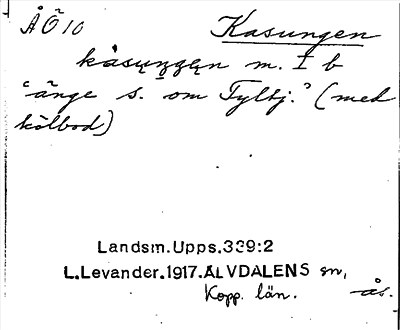 ÅÖ 10 Kasungen
kåsųŋgęn m. I b
"änge s. om Fyltj." (med
kölbod)
Landsm.Upps.339:2
L.Levander.1917.ÄLVDALENS sn,
Kopp. län. ås.